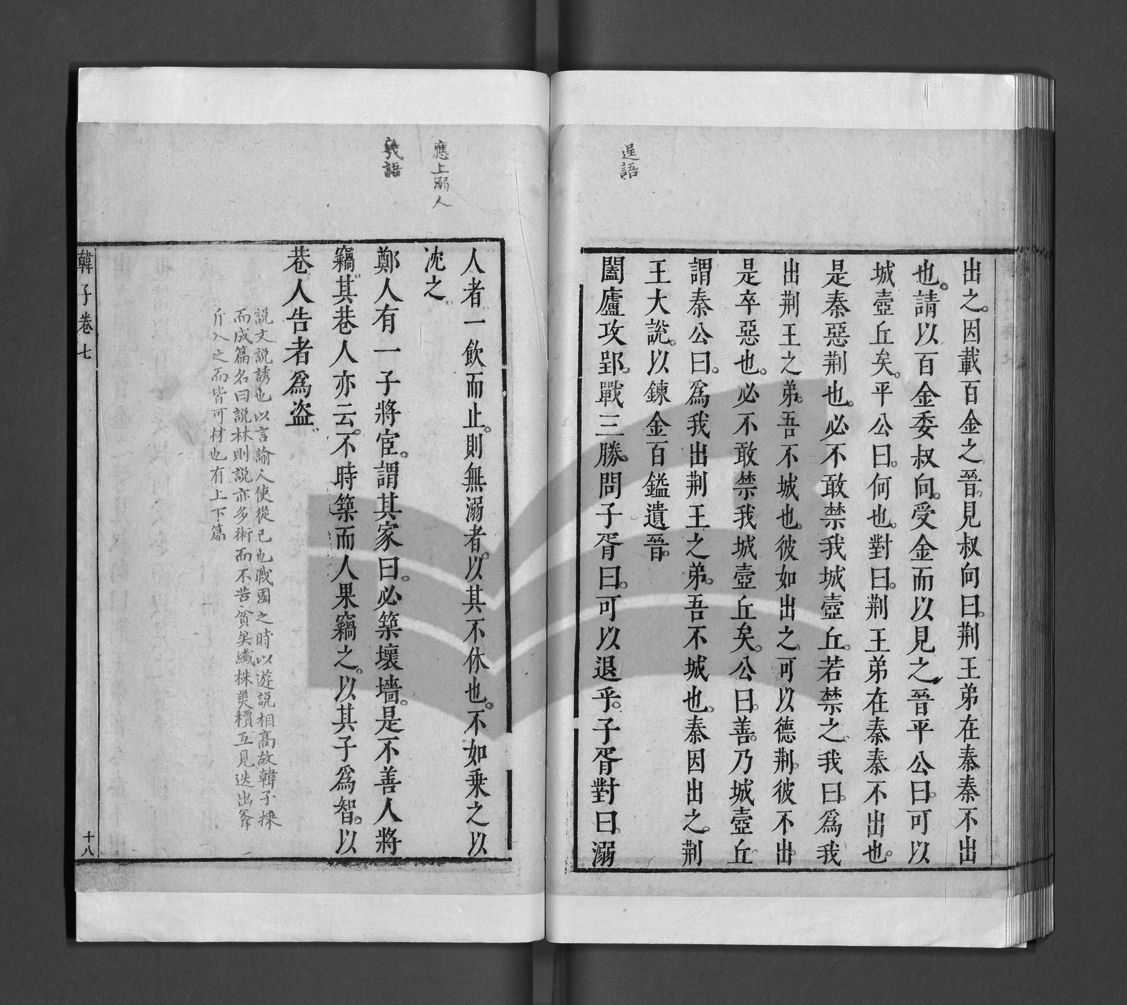 逞語
出之因載百金之晉見叔向曰荆王弟在秦秦不出
也請以百金委叔向受金而以見之晉平公曰可以
城壺丘矣平公曰何也對曰荆王弟在秦秦不出也
是秦惡荆也必不敢禁我城壺丘若禁之我曰爲我
出荆王之弟吾不城也彼如出之可以德荆彼不出
是卒惡也必不敢禁我城壺丘矣公曰善乃城壺丘
謂秦公曰爲我出荆王之弟吾不城也秦因出之荆
王大說以鍊金百鎰遺晉
闔廬攻郢戰三勝問子胥曰可以退乎子胥對曰溺
應上溺人
人者一飲而止則無溺者以其不休也不如乗之以
沈之
鄭人有一子將宦謂其家曰必築壞墻是不善人將
竊其巷人亦云不時築而人果竊之以其子爲智以
巷人告者爲盜
説文説誘也以言諭人使從己也戰國之時以遊説相高故韓子採
而成篇名曰説林則説亦多術而不告貧矣纖株互見迭出斧
斤入之而皆可材也有上下篇
韓子卷七
十八